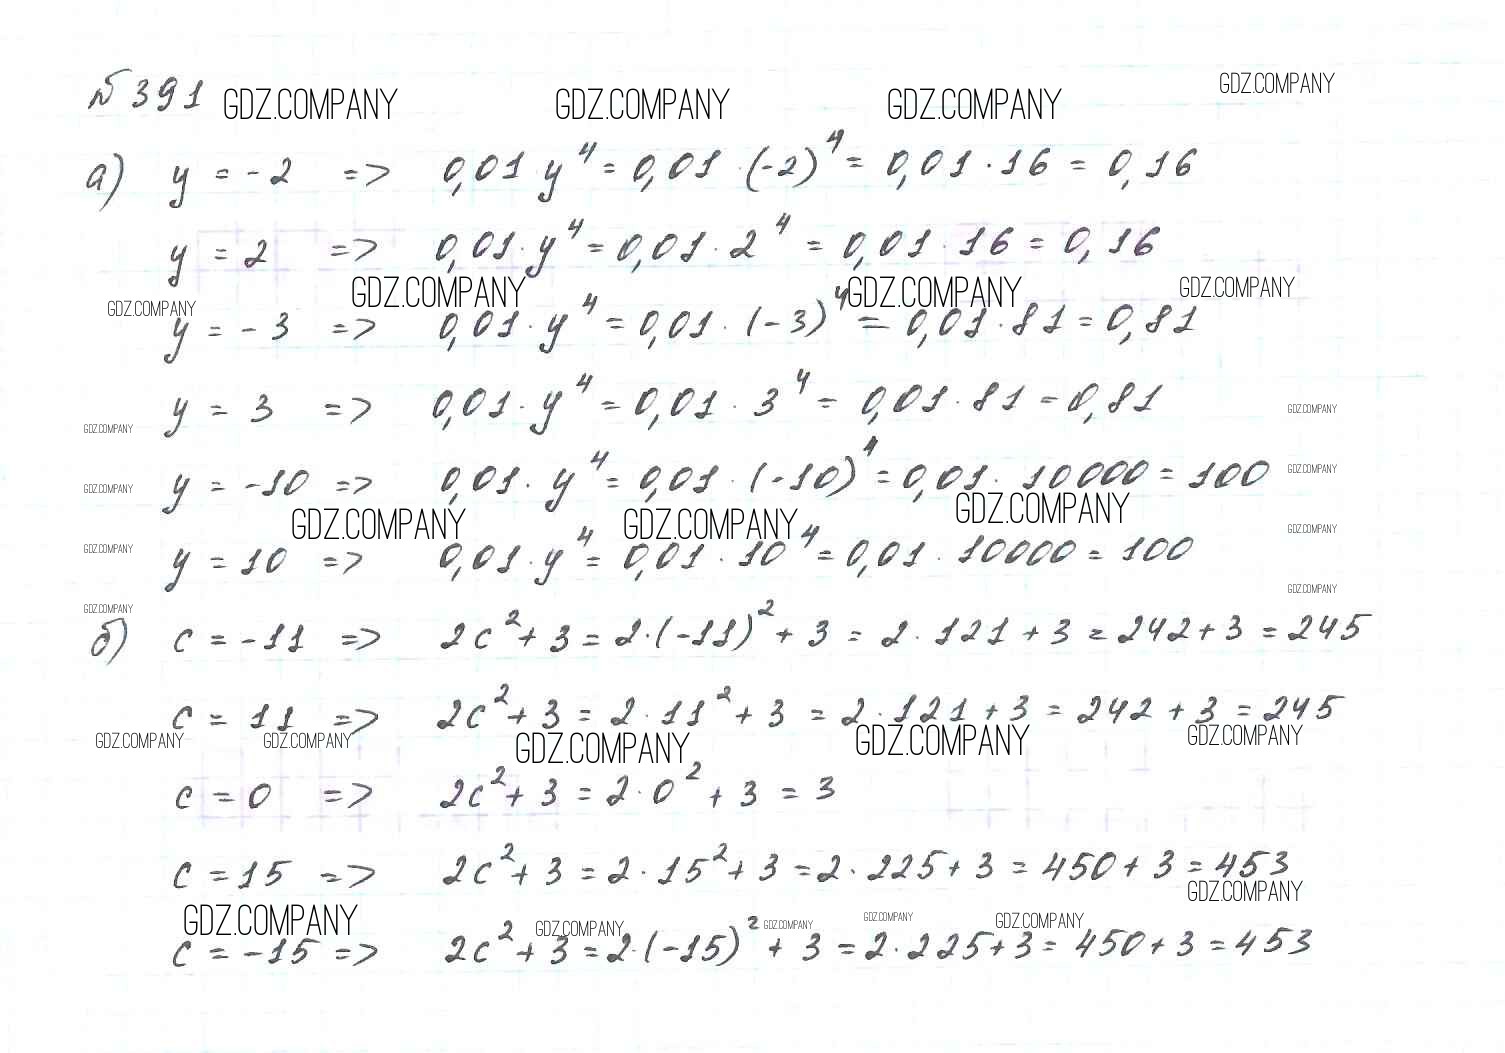 №391 GDZ.COMPANY GDZ.COMPANY GDZ.COMPANY GDZ.COMPANY
а) y = -2 => 0,01 y⁴ = 0,01 · (-2)⁴ = 0,01 · 16 = 0,16
y = 2 => 0,01 · y⁴ = 0,01 · 2⁴ = 0,01 · 16 = 0,16
GDZ.COMPANY GDZ.COMPANY GDZ.COMPANY GDZ.COMPANY
y = -3 => 0,01 · y⁴ = 0,01 · (-3)⁴ = 0,01 · 81 = 0,81
y = 3 => 0,01 · y⁴ = 0,01 · 3⁴ = 0,01 · 81 = 0,81
GDZ.COMPANY GDZ.COMPANY
y = -10 => 0,01 · y⁴ = 0,01 · (-10)⁴ = 0,01 · 10000 = 100
GDZ.COMPANY GDZ.COMPANY
GDZ.COMPANY GDZ.COMPANY GDZ.COMPANY GDZ.COMPANY
y = 10 => 0,01 · y⁴ = 0,01 · 10⁴ = 0,01 · 10000 = 100
GDZ.COMPANY GDZ.COMPANY
GDZ.COMPANY GDZ.COMPANY
б) c = -11 => 2c² + 3 = 2 · (-11)² + 3 = 2 · 121 + 3 = 242 + 3 = 245
c = 11 => 2c² + 3 = 2 · 11² + 3 = 2 · 121 + 3 = 242 + 3 = 245
GDZ.COMPANY GDZ.COMPANY GDZ.COMPANY GDZ.COMPANY GDZ.COMPANY
c = 0 => 2c² + 3 = 2 · 0² + 3 = 3
c = 15 => 2c² + 3 = 2 · 15² + 3 = 2 · 225 + 3 = 450 + 3 = 453
GDZ.COMPANY GDZ.COMPANY GDZ.COMPANY GDZ.COMPANY GDZ.COMPANY GDZ.COMPANY
c = -15 => 2c² + 3 = 2 · (-15)² + 3 = 2 · 225 + 3 = 450 + 3 = 453